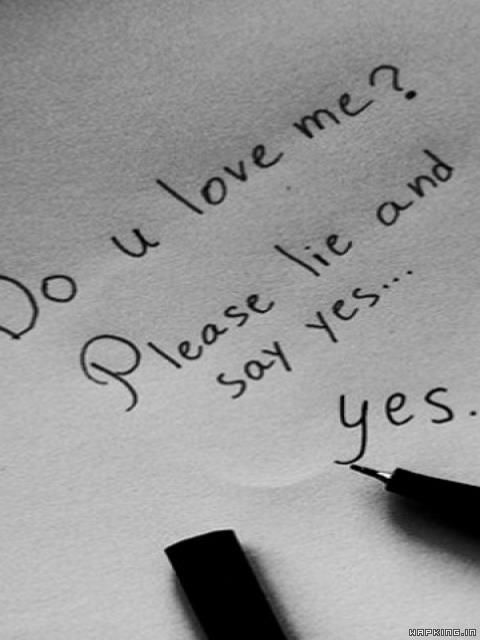 Do u love me?
Please lie and
say yes...
yes.
WAPKING.IN